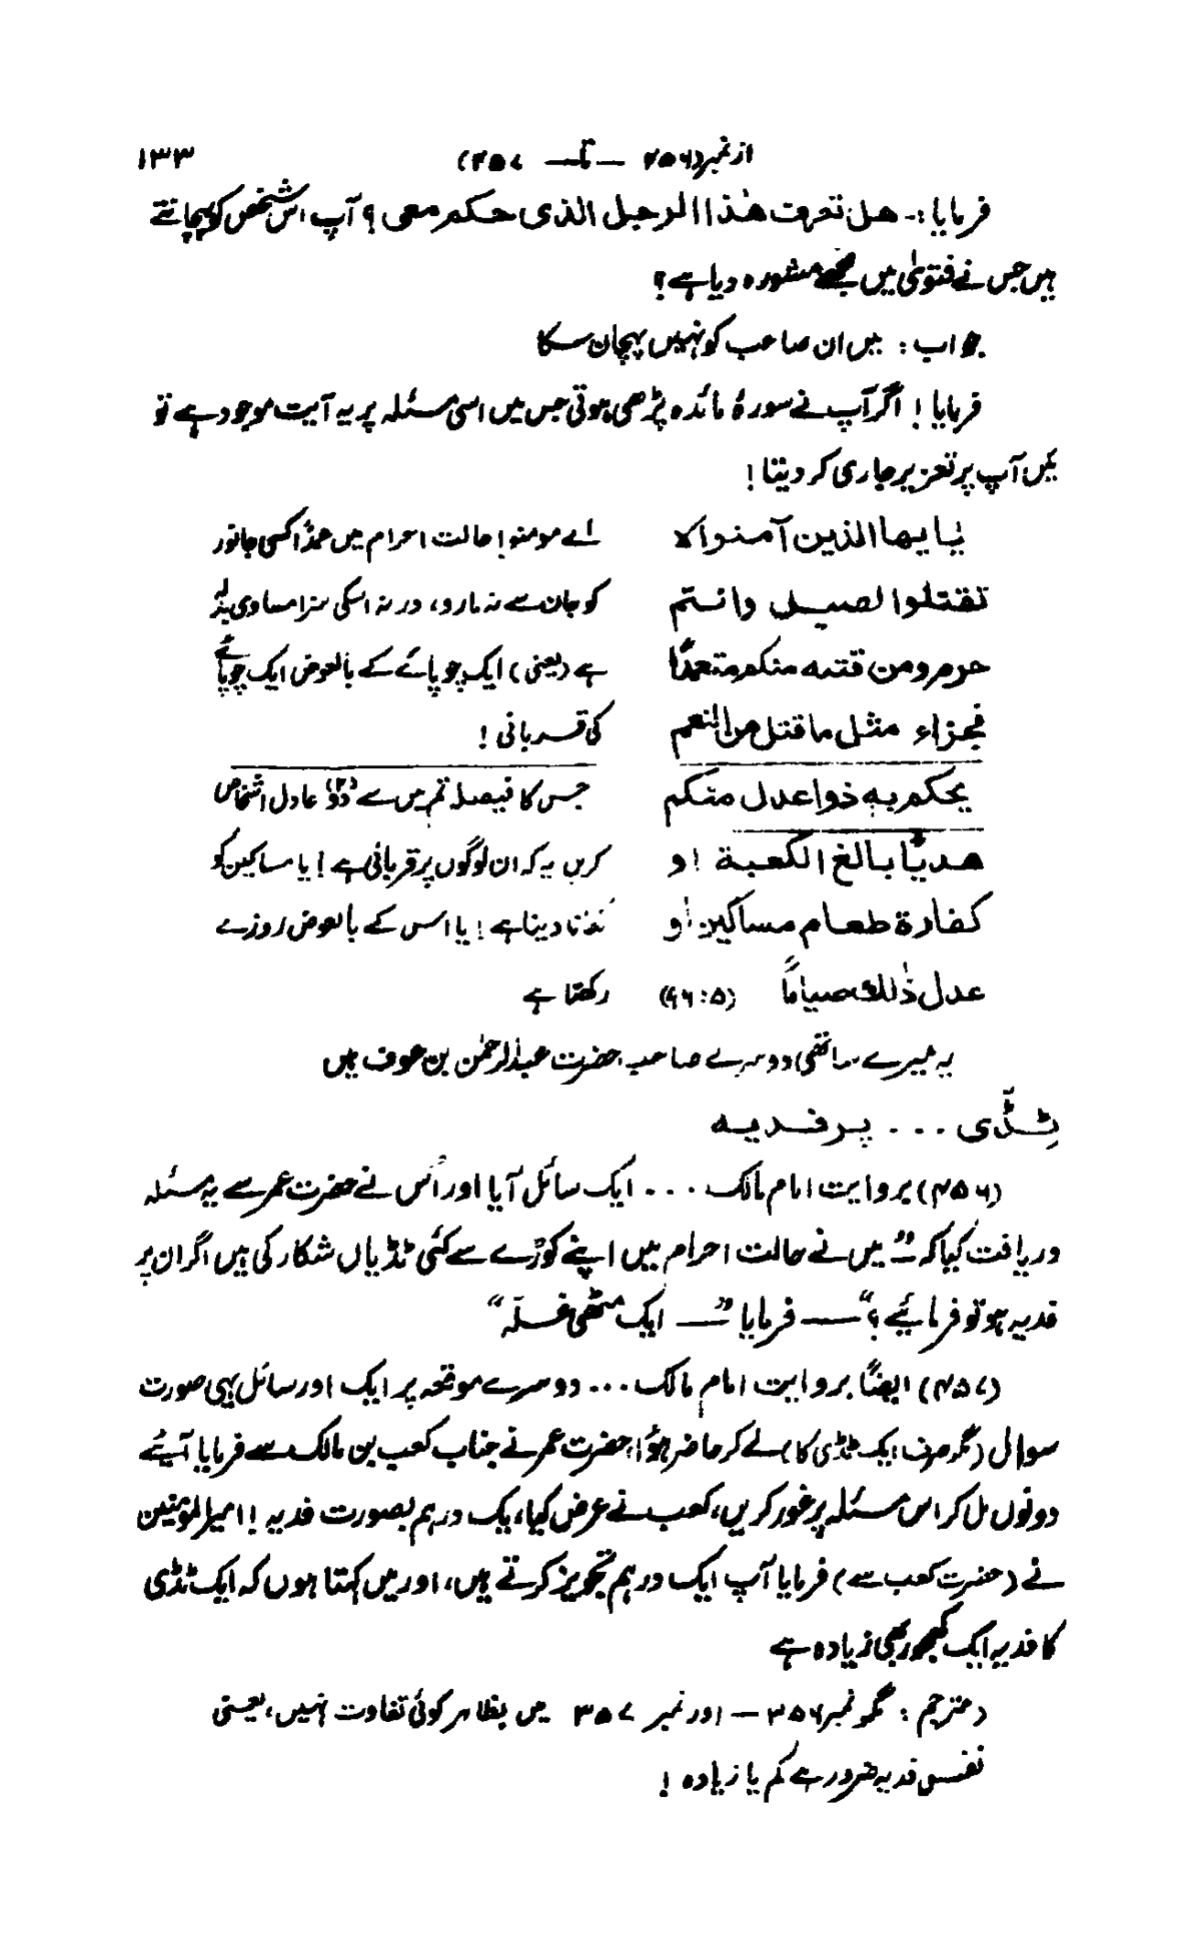 از نمبر(۲۵۶ — تا — ۲۵۷) ۱۳۳
فرمایا :۔ هل تعرف هٰذا الرجل الذی حکم معی ؟ آپ اس شخص کو پہچانتے
ہیں جس نے فتویٰ میں مجھے مشورہ دیا ہے ؟
جواب : میں ان صاحب کو نہیں پہچان سکا
فرمایا ! اگر آپ نے سورۂ مائدہ پڑھی ہوتی جس میں اسی مسئلہ پر یہ آیت موجود ہے تو
میں آپ پر تعزیر جاری کر دیتا !
یٰایها الذین آمنوا لا اے مومنو! حالت احرام میں عمدًا کسی جانور
تقتلوا لصید وانتم کو جان سے نہ مارو، ورنہ اسکی سزا مساوی بدلہ
حرم ومن قتله منکم متعمدًا ہے (یعنی) ایک چوپائے کے بالعوض ایک چوپائے
فجزاء مثل ما قتل من النعم کی قربانی !
یحکم به ذوا عدل منکم جس کا فیصلہ تم میں سے دو (۲) عادل اشخاص
هدیًا بالغ الکعبة او کریں یہ کہ ان لوگوں پر قربانی ہے ! یا مساکین کو
کفارة طعام مساکین او کھانا دینا ہے ! یا اس کے بالعوض روزے
عدل ذٰلک صیامًا (۵:۹۶) رکھنا ہے
یہ میرے ساتھی دوسرے صاحب، حضرت عبدالرحمٰن بن عوف ہیں
ٹِڈّی ... پر فدیہ
(۴۵۶) بروایت امام مالک ... ایک سائل آیا اور اُس نے حضرت عمر سے یہ مسئلہ
دریافت کیا کہ — ”میں نے حالت احرام میں اپنے کوڑے سے کئی ٹڈیاں شکار کی ہیں اگر ان پر
فدیہ ہو تو فرمائیے ؟“ — فرمایا — ”ایک مٹھی غلّہ“
(۴۵۷) ایضًا بروایت امام مالک ... دوسرے موقعہ پر ایک اور سائل یہی صورت
سوال (مگر صرف ایک ٹڈی کا) لے کر حاضر ہوا، حضرت عمر نے جناب کعب بن مالک سے فرمایا آیئے
دونوں مل کر اس مسئلہ پر غور کریں، کعب نے عرض کیا، یک درہم بصورت فدیہ ! امیرالمومنین
نے (حضرت کعب سے) فرمایا آپ ایک درہم تجویز کرتے ہیں، اور میں کہتا ہوں کہ ایک ٹڈی
کا فدیہ ایک کھجور بھی زیادہ ہے
(مترجم : گو نمبر ۳۵۶ — اور نمبر ۳۵۷ میں بظاہر کوئی تفاوت نہیں، یعنی
نفس فدیہ ضرور ہے کم یا زیادہ !